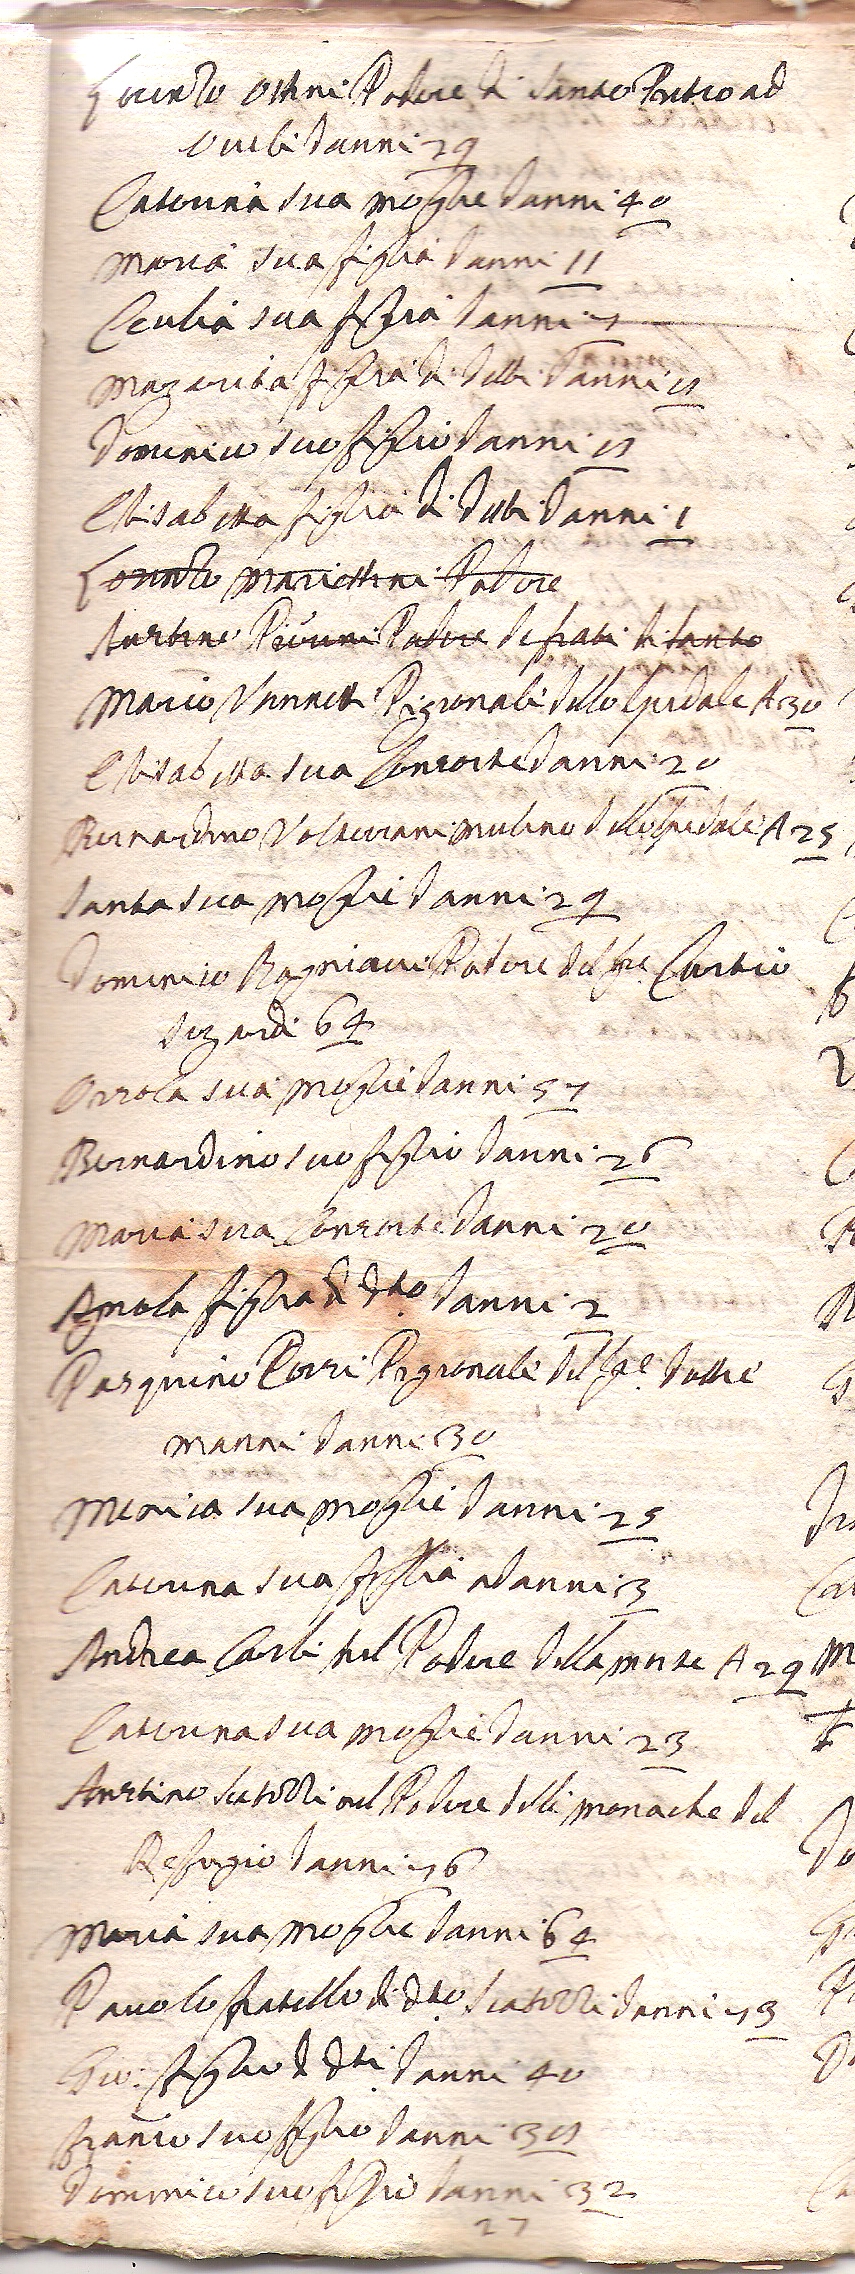 Lorenzo Ottini Podere di Santo Pietro ad
Ovili d anni 29
Caterina sua moglie d anni 40
Maria sua figlia d anni 11
Cecilia sua figlia d anni 7
Margarita figlia di detti d anni 5
Domenico suo figlio d anni 5
Elisabetta figlia di detti d anni 1
Lorenzo Mariottini Podere
Austino Pecinni Podere de frati di santo
Mario Vannetti Pigionale dello Spedale A 30
Elisabetta sua Consorte d anni 20
Bernardino Volterrani mulino dello Spedale A 25
Santa sua moglie d anni 29
Domenico Bagniacci Podere del Sre Curtio
Sergardi 64
Orsola sua moglie d anni 57
Bernardino suo figlio d anni 26
Maria sua Consorte d anni 20
Agnola figlia di dto d anni 2
Pasquino Corsi Pigionale del Sre Dottre
Manni d anni 30
Menica sua moglie d anni 25
Caterina sua figlia d anni 3
Andrea Carli nel Podere della morte A 29
Caterina sua moglie d anni 23
Austino Scatozzi nel Podere delle monache del
Reffugio d anni 76
Maria sua moglie d anni 64
Pauolo fratello di dto Scatozzi d anni 73
Gio: figlio di dti d anni 40
franco suo figlio d anni 35
Domenico suo figlio d anni 32
27